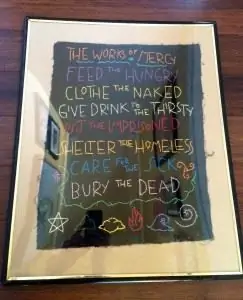 THE WORKS OF MERCY
FEED THE HUNGRY
CLOTHE THE NAKED
GIVE DRINK TO THE THIRSTY
VISIT THE IMPRISONED
SHELTER THE HOMELESS
CARE FOR THE SICK
BURY THE DEAD